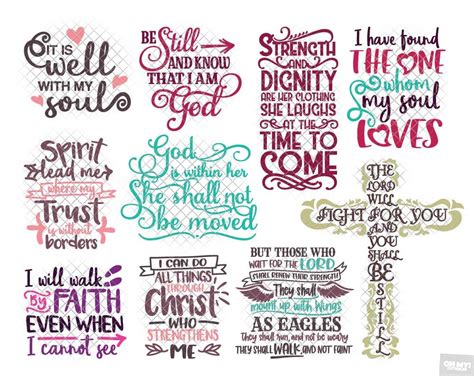 IT IS
well
WITH MY
soul
BE Still
AND KNOW
THAT I AM
God
STRENGTH
AND
DIGNITY
ARE HER CLOTHING
SHE LAUGHS
AT THE
TIME TO
COME
I have found
THE ONE
whom
my soul
LOVES
Spirit
lead me
where my
Trust
is without
borders
God
is within her
She shall not
be moved
THE
LORD
WILL
FIGHT FOR YOU
AND
YOU
SHALL
BE
STILL
I will walk
BY FAITH
EVEN WHEN
I cannot see
I CAN DO
ALL THINGS
THROUGH
Christ
WHO
STRENGTHENS
ME
BUT THOSE WHO
WAIT FOR THE LORD
SHALL RENEW THEIR STRENGTH
They shall
mount up with Wings
AS EAGLES
They shall run, and not be weary
They shall WALK, and not faint
OH MY!